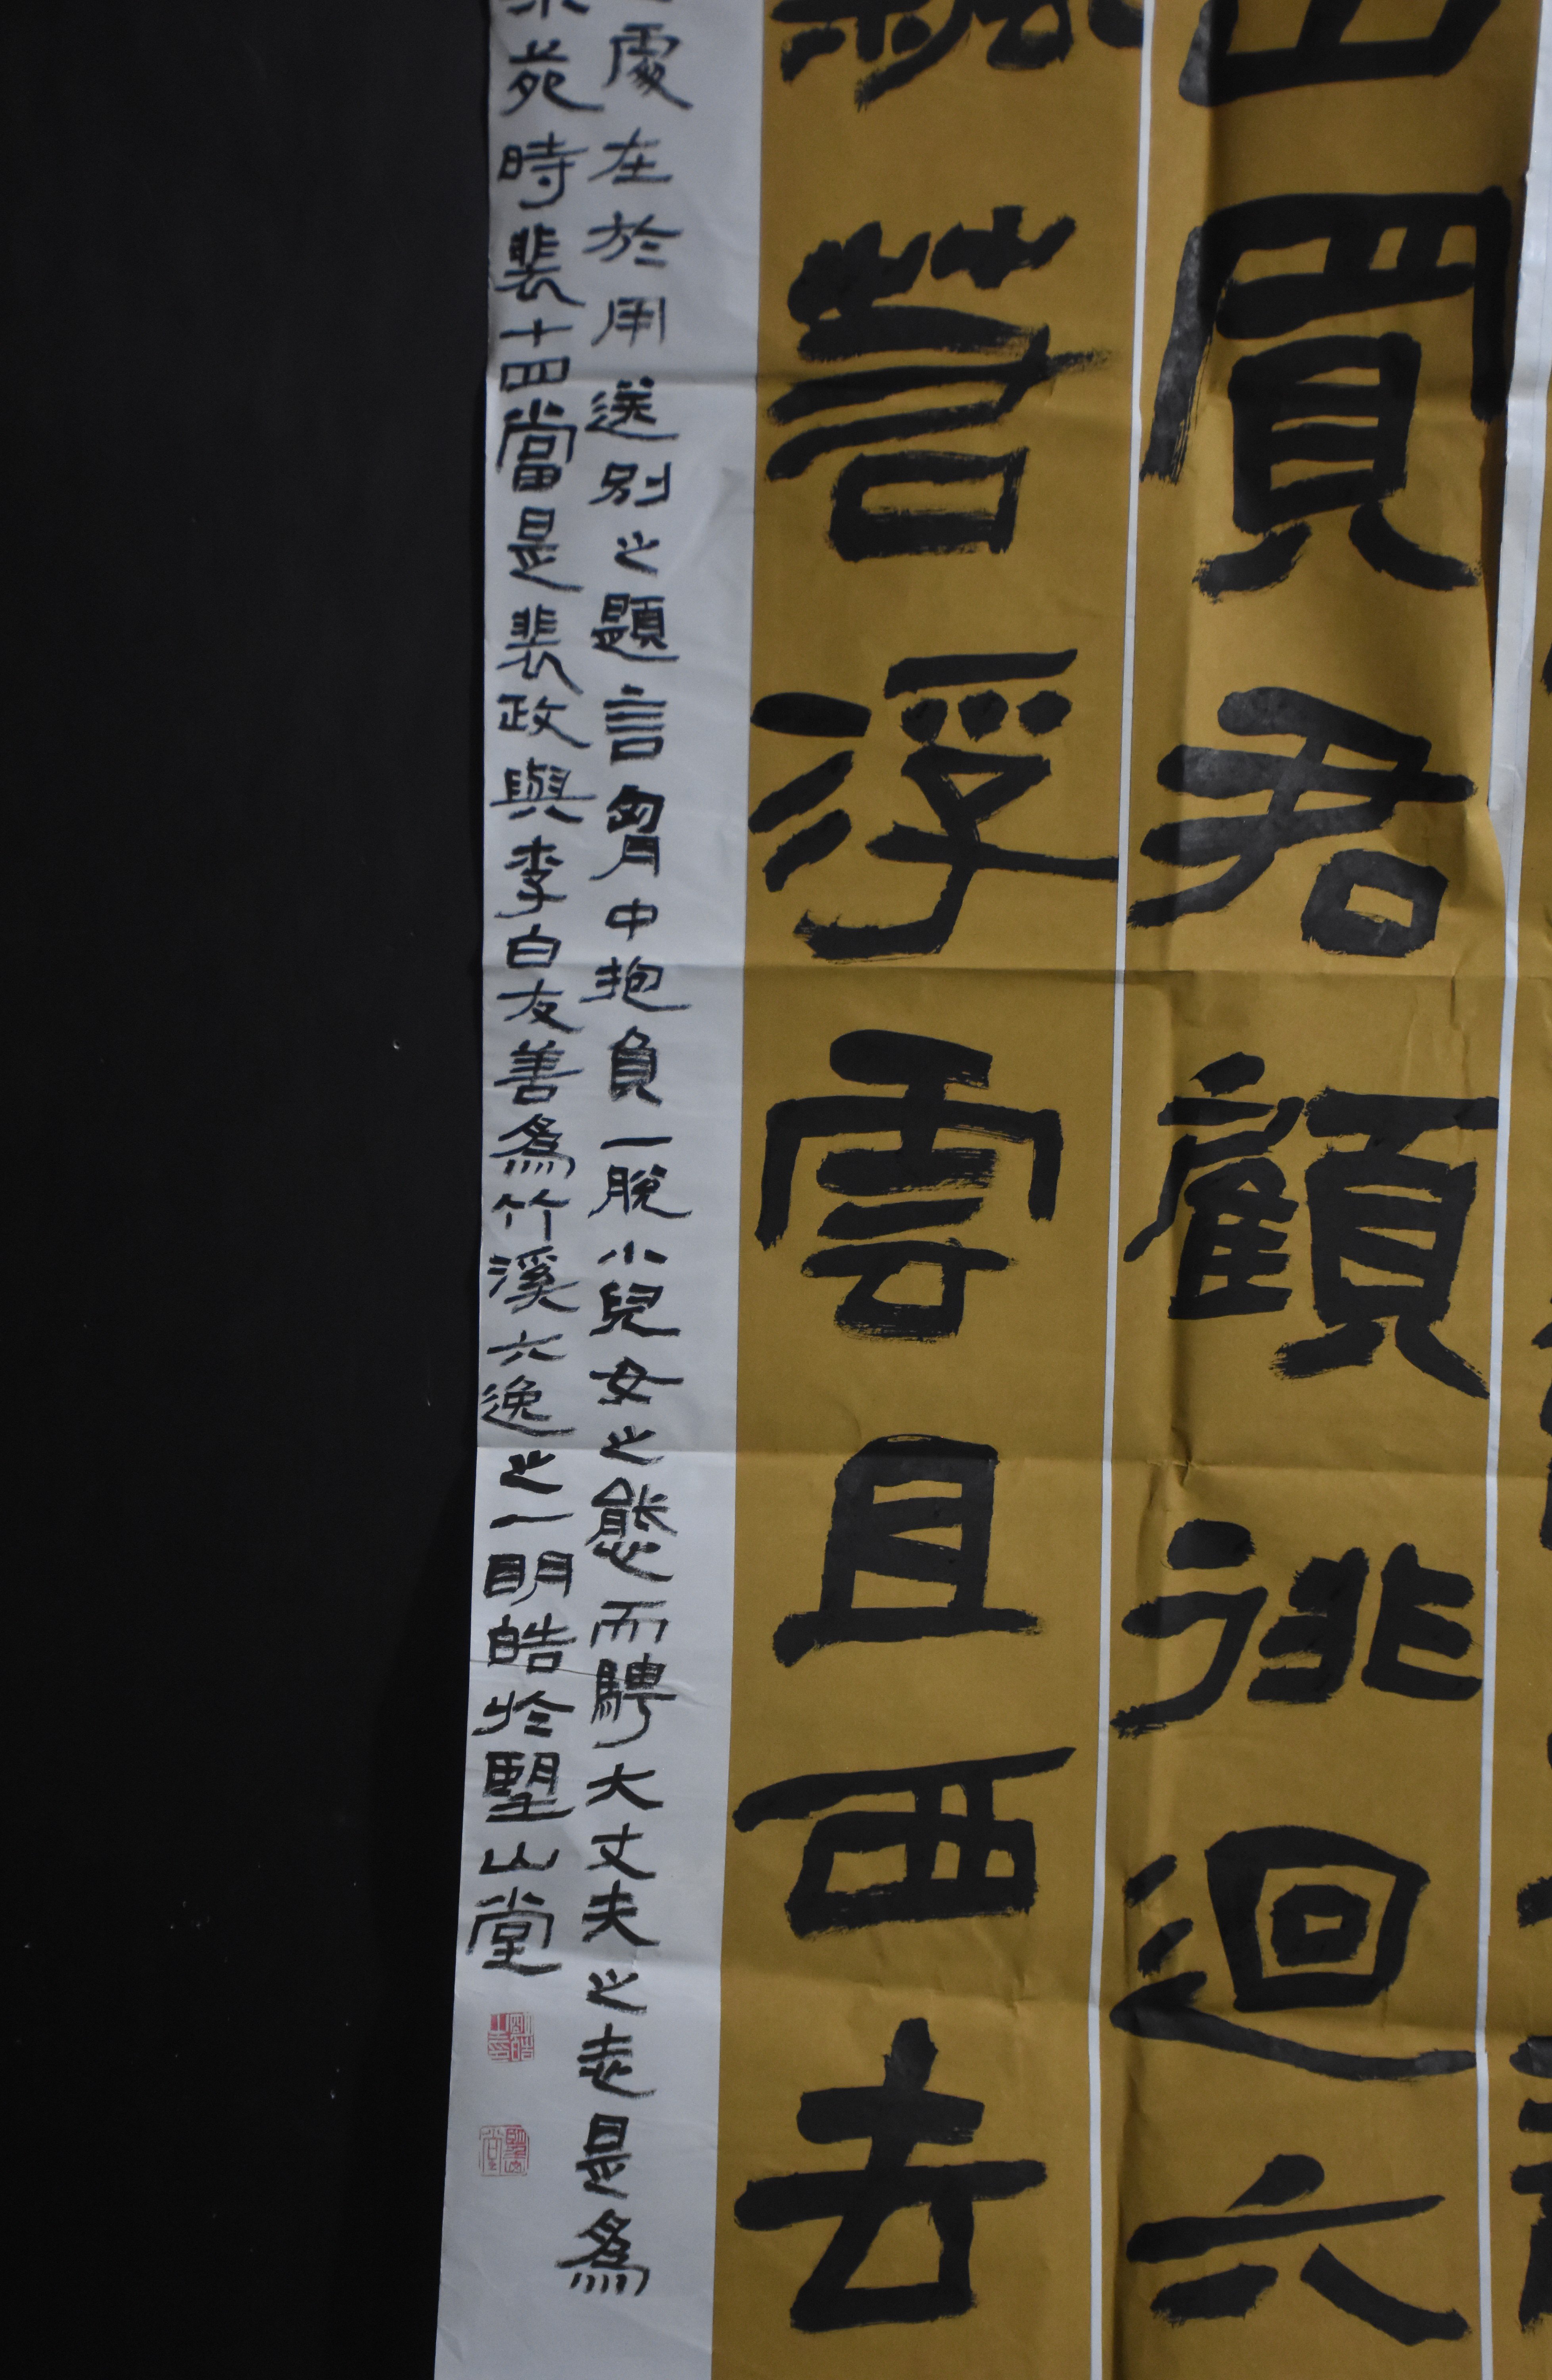 山買君顧徘迴六
飄若浮雲且西去
處在於用送別之題言胷中抱負一脫小兒女之態而騁大丈夫之志是爲
苑時裴十四當是裴政與李白友善爲竹溪六逸之一明皓於朢山堂